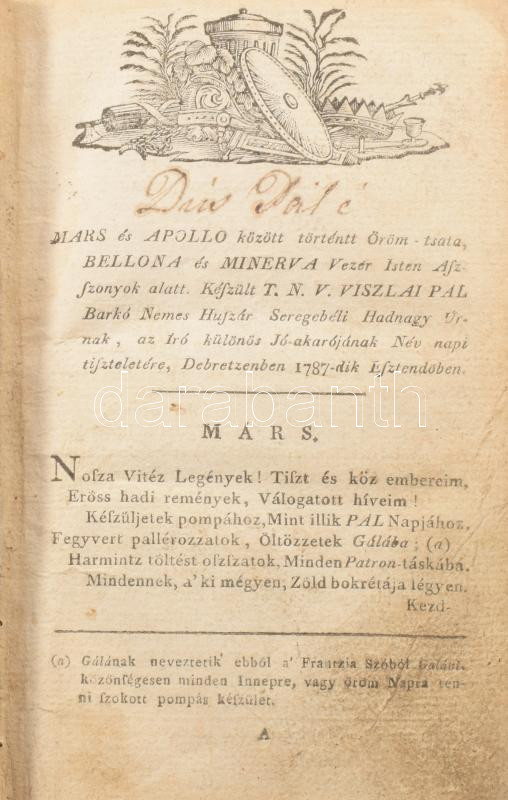 Dús Pálé
MARS és APOLLO között történtt Öröm-tsata,
BELLONA és MINERVA Vezér Isten Aſz-
ſzonyok alatt. Kéſzült T. N. V. VISZLAI PÁL
Barkó Nemes Huſzár Seregebéli Hadnagy Úr-
nak, az Író különös Jó-akarójának Név napi
tiſzteletére, Debretzenben 1787-dik Eſztendőben.
darabanth
MÁRS.
Noſza Vitéz Legények! Tiſzt és köz embereim,
Erőss hadi remények, Válogatott híveim!
Kéſzüljetek pompához, Mint illik PÁL Napjához,
Fegyvert pallérozzatok, Öltözzetek Gálába; (a)
Harmintz töltést oſzſzatok, Minden Patron-táskába.
Mindennek, a' ki mégyen, Zöld bokrétája légyen.
Kezd-
(a) Gálának neveztetik ebből a' Frantzia Szóból Galant,
közönségesen minden Innepre, vagy öröm Napra ten-
ni ſzokott pompás kéſzület.
A